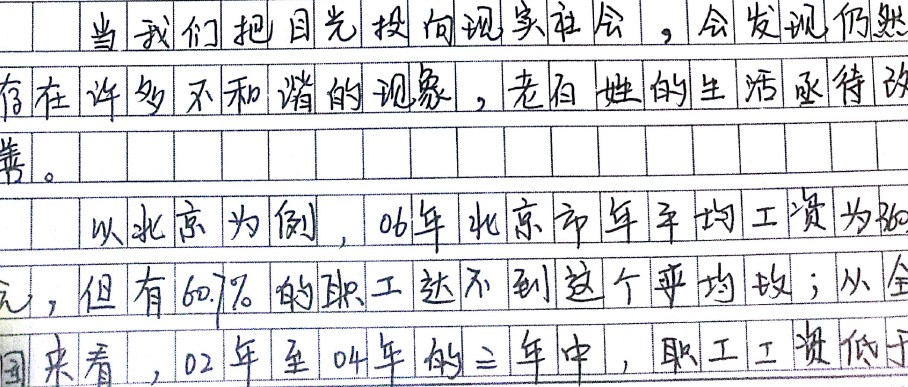 当我们把目光投向现实社会，会发现仍然
存在许多不和谐的现象，老百姓的生活亟待改
善。
以北京为例，06年北京市年平均工资为360
元，但有60.7%的职工达不到这个平均数；从全
国来看，02年至04年的三年中，职工工资低于